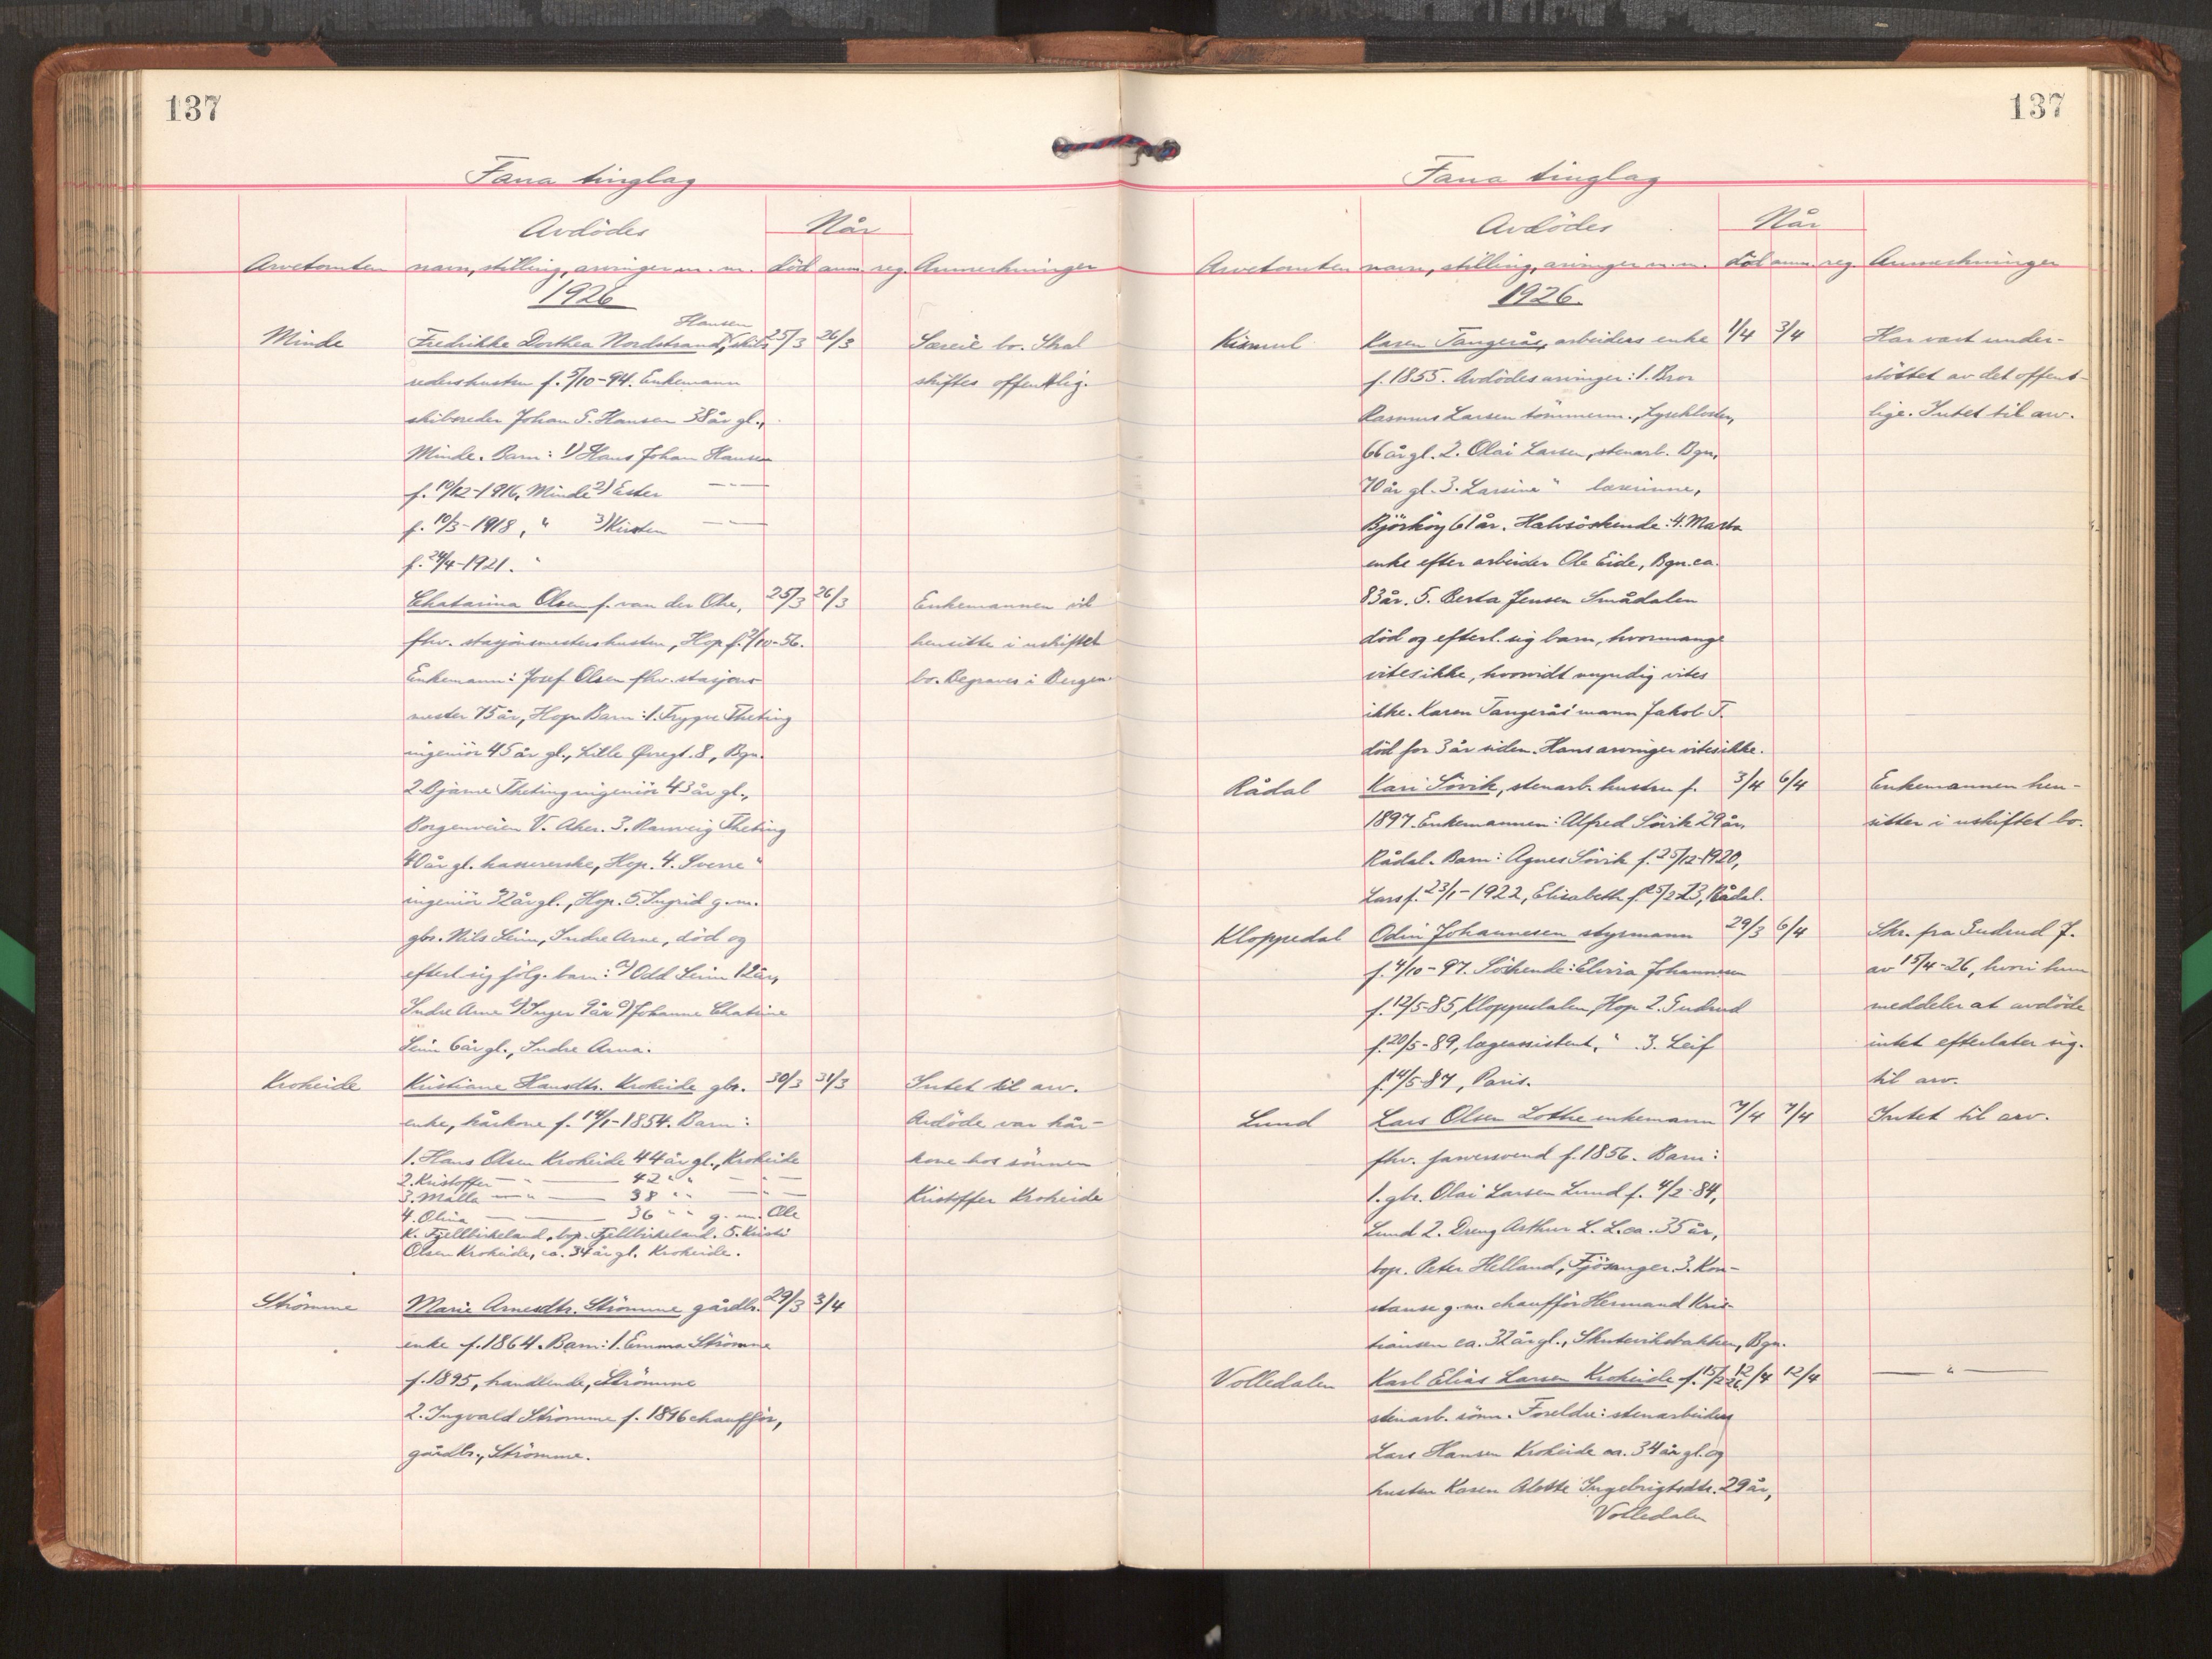 137
Fana tinglag
Avdödes
Når
Arvetomten navn, stilling, arvinger m. m. död anm. reg. Anmerkninger
1926
Hansen
Minde Fredrikke Dorthea Nordstrand, skibs 25/3 26/3 Særeie bo. Skal
rederhustru f. 5/10-94. Enkemann skiftes offentlig.
skibsreder Johan S. Hansen 38 år gl.,
Minde. Barn: 1) Hans Johan Hansen
f. 10/12-1916, Minde 2) Ester — " —
f. 10/3-1918, " 3) Kirsten — " —
f. 24/4-1921. "
Chatarina Olsen f. van der Ohe, 25/3 26/3 Enkemannen vil
fhv. stasjonsmesters hustru, Hop f. 7/10-56. hensitte i uskiftet
Enkemann: Josef Olsen fhv. stasjons bo. Begraves i Bergen
mester 75 år, Hop. Barn: 1. Trygve Theting
ingeniör 45 år gl., Lille Øvregt. 8, Bgn.
2. Bjarne Theting ingeniör 43 år gl.,
Borgenveien V. Aker. 3. Ranveig Theting
40 år gl. kassererske, Hop. 4. Sverre "
ingeniör 32 år gl., Hop. 5. Ingrid g. m.
gbr. Nils Seim, Indre Arne, död og
efterl. sig fölg. barn: a) Odd Seim 12 år,
Indre Arne b) Inger 9 år c) Johanne Chatrine
Seim 6 år gl., Indre Arna.
Krokeide Kristiane Hansdtr. Krokeide gbr. 30/3 31/3 Intet til arv.
enke, kårkone f. 14/1-1854. Barn: Avdöde var kår-
1. Hans Olsen Krokeide 44 år gl., Krokeide kone hos sönnen
2. Kristoffer — " — 42 " " — " —
3. Malla — " — 38 " " — " — Kristoffer Krokeide
4. Olina — — 36 " " g. m. Ole
K. Fjellbirkeland, bop. Fjellbirkeland. 5. Kristi
Olsen Krokeide, ca. 34 år gl. Krokeide.
Strömme Marie Arnesdtr. Strömme gårdbr. 29/3 3/4
enke f. 1864. Barn: 1. Emma Strömme
f. 1895, handlende, Strömme
2. Ingvald Strömme f. 1896 chaufför,
gårdbr., Strömme.
137
Fana tinglag
Avdödes
Når
Arvetomten navn, stilling, arvinger m. m. död anm. reg. Anmerkninger
1926.
Kismul Karen Tangerås, arbeiders enke 1/4 3/4 Har vært under-
f. 1855. Avdödes arvinger: 1. Bror stöttet av det offent-
Rasmus Larsen tömmerm., Lysekloster, lige. Intet til arv.
66 år gl. 2. Olai Larsen, stenarb. Bgn,
70 år gl. 3. Larsine " lærerinne,
Björköy 61 år. Halvsöskende: 4. Marta
enke efter arbeider Ole Eide, Bgn. ca.
83 år. 5. Berta Jensen Smådalen
död og efterl. sig barn, hvormange
vites ikke, hvorvidt umyndig vites
ikke. Karen Tangerås' mann Jakob T.
död for 3 år siden. Hans arvinger vites ikke.
Rådal Kari Sövik, stenarb. hustru f. 3/4 6/4 Enkemannen hen-
1897. Enkemannen: Alfred Sövik 29 år, sitter i uskiftet bo.
Rådal. Barn: Agnes Sövik f. 25/12-1920,
Lars f. 23/1-1922, Elisabeth f. 25/2 23, Rådal.
Kloppedal Odin Johannesen styrmann 29/3 6/4 Skr. fra Gudrud J.
f. 4/10-97. Söskende: Elvira Johannesen av 15/4-26, hvori hun
f. 12/5-85, Kloppedalen, Hop 2. Gudrud meddeler at avdöde
f. 20/5-89, lægeassistent, " 3. Leif intet efterlater sig
f. 14/5-87, Paris. til arv.
Lund Lars Olsen Lothe enkemann 7/4 7/4 Intet til arv.
fhv. farversvend f. 1856. Barn:
1. gbr. Olai Larsen Lund f. 4/2-84,
Lund 2. Dreng Arthur L. L. ca. 35 år,
bop. Peter Helland, Fjösanger. 3. Kon-
stanse g. m. chaufför Hermand Kris-
tiansen ca. 32 år gl., Skuteviksbakken, Bgn.
Volledalen Karl Elias Larsen Krokeide f. 15/2 26 12/4 12/4 — " —
stenarb. sönn. Foreldre: stenarbeider
Lars Hansen Krokeide ca. 34 år gl. og
hustru Karen Alette Ingebrigtsdtr. 29 år,
Volledalen